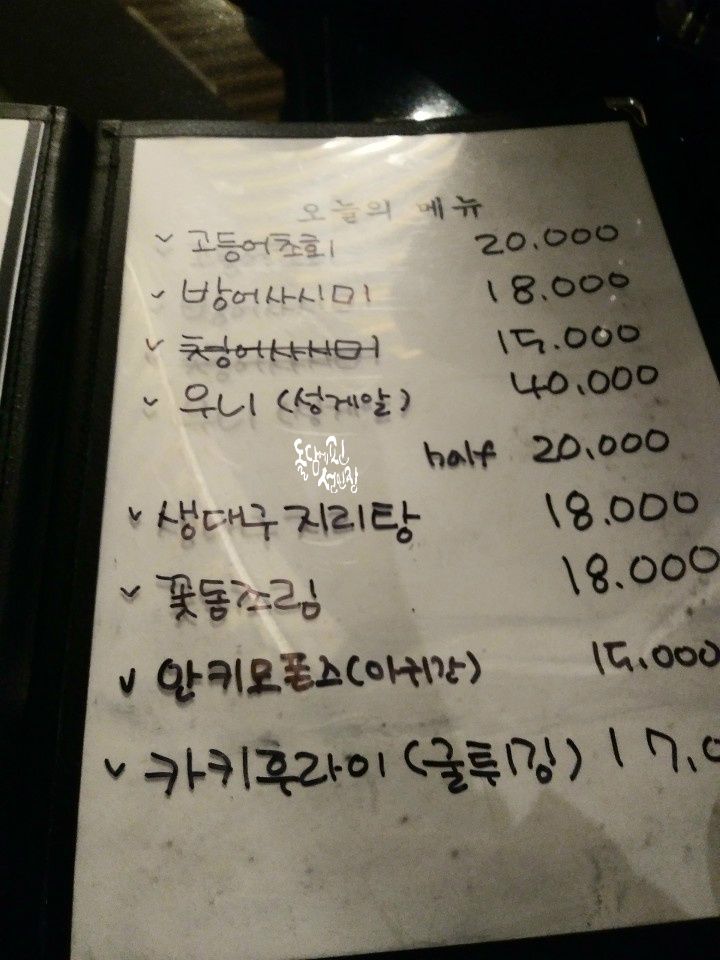 오늘의 메뉴
✓ 고등어초회 20.000
✓ 방어사시미 18.000
✓ 청어사시미 15.000
✓ 우니 (성게알) 40.000
half 20.000
돌담에핀
선인장
✓ 생대구 지리탕 18.000
✓ 꽃돔조림 18.000
✓ 안키모폰즈(아귀간) 15.000
✓ 카키후라이 (굴튀김) 17.0